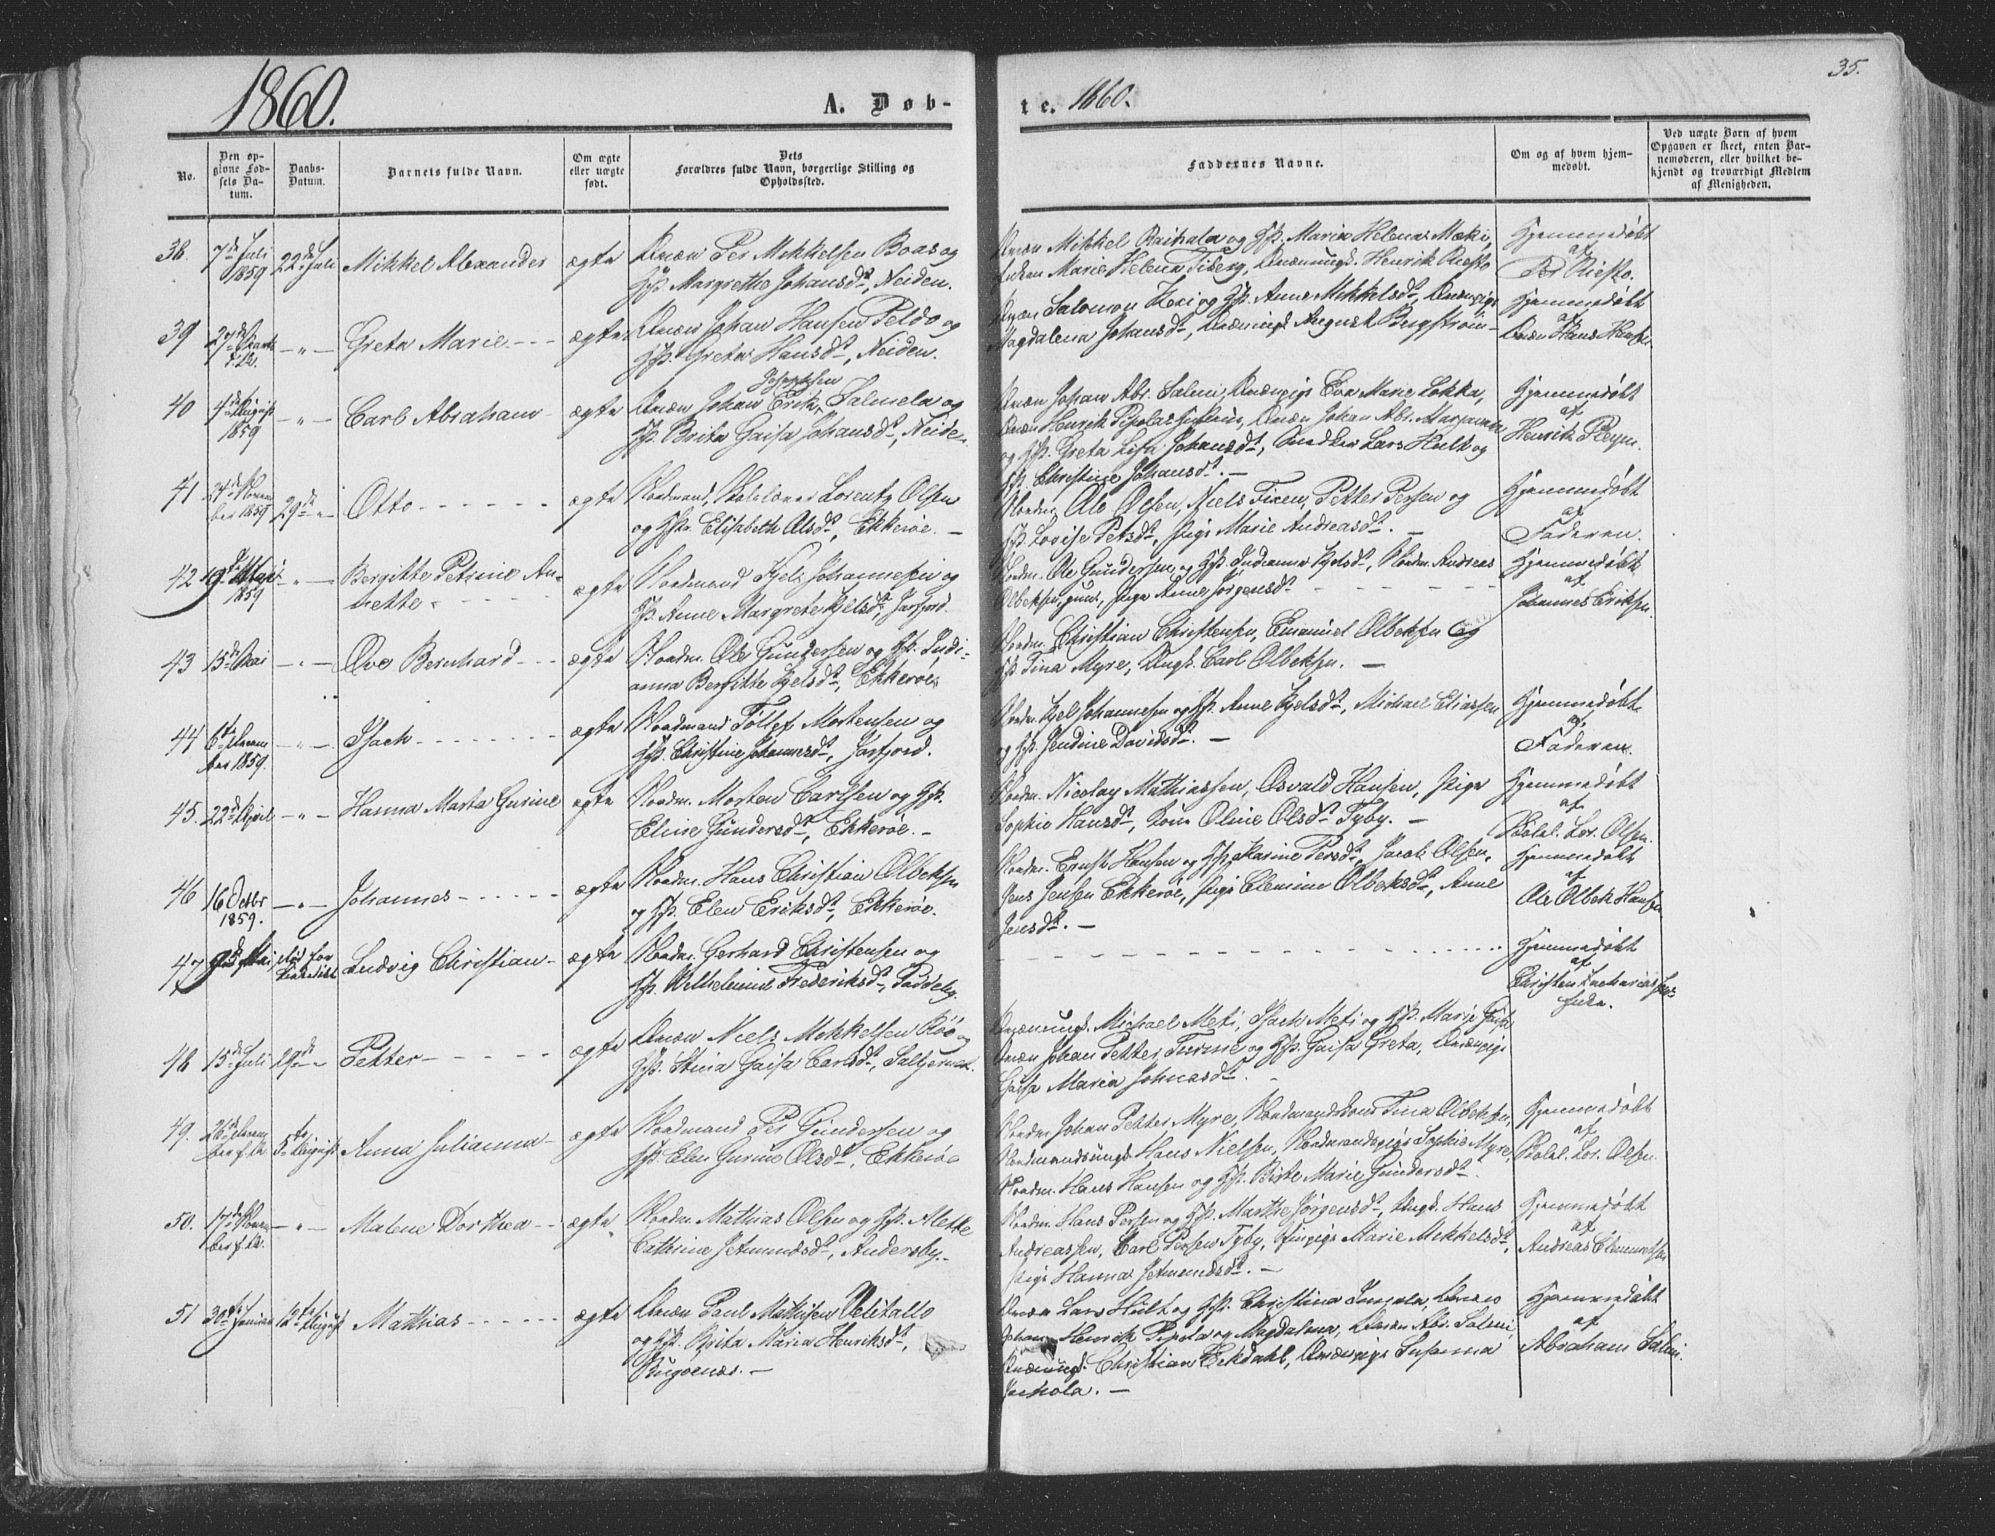 1860.
A. Døb-
te. 1860.
35.
No.
Den op-
givne Fød-
sels Da-
tum.
Daabs-
Datum.
Barnets fulde Navn.
Om ægte
eller uægte
født.
Dets
Forældres fulde Navn, borgerlige Stilling og
Opholdssted.
Faddernes Navne.
Om og af hvem hjem-
medøbt.
Ved uægte Børn af hvem
Opgaven er skeet, enten Bar-
nemoderen, eller hvilket be-
kjendt og troværdigt Medlem
af Menigheden.
38
7de Juli
1859
22de Juli
Mikkel Alexander
ægte
Qvæn Per Mikkelsen Boas og
Hst. Margrethe Johansdt., Neiden.
Qvæn Mikkel Raihala og Hst. Maria Helena Mæki,
Marie Helena Fiberg, Qvænungk. Henrik Riesto
Hjemmedøbt
af
Per Riesto.
39
-"-
Greta Marie
ægte
Qvæn Johan Hansen Peldo og
Hst. Greta Hansdt., Neiden.
Qvæn Salomon og Hst. Anna Mikkelsdt., Qvænpige
Magdalena Johansdt., Qvænungk. August Bergstrøm
Hjemmedøbt
af
Qvæn Hans
40
4de August
1859
-"-
Carl Abraham
ægte
Josephsen
Qvæn Johan Erik Salmela og
Hst. Brita Gaisa Johansdt., Neiden
Qvæn Johan Abr. Salmi, Qvænpige Eva Marie Lokka,
Qvæn Henrik Qvæn Johan Abr.
og Hst. Greta Lisa Johansdt., Snedker Lars Hult og
Hst. Christine Johansdt. —
Hjemmedøbt
af
Henrik Pleym.
41
24de Novem
ber 1859
29de -"-
Otto
ægte
Nordmand, Skolelærer Lorentz Olsen
og Hstr. Elisabeth Olsdt., Ekkerøe. —
Nordm. Ole Olsen, Niels Petter Persen og
Hst. Lovise Petersdt., Pige Marie Andreasdt. —
Hjemmedøbt
af
Faderen.
42
19de Mai
1859
-"-
Bergitte Petrine An-
nette
ægte
Nordmand Kjel Johannesen og
Hst. Anne Margrete Kjelsdt., Jarfjord
Nordm. Ole Gundersen og Hst. Indianna Kjelsdt., Nordm. Andreas
Olbeksen, Pige Anne Jørgensdt.
Hjemmedøbt
af
Johannes Eriksen
43
15de Mai
-"-
Ove Bernhard
ægte
Nordm. Ole Gundersen og Hst. Indi-
anna Bergitte Kjelsdt., Ekkerøe.
Nordm. Christian Christensen, Emanuel Olbeksen og
Hst. Tina Myre, Ungk. Carl Olbeksen. —
44
6te
ber 1859.
-"-
Isach
ægte
Nordmand Tollef Mortensen og
Hst. Christine Johannesdt., Jarfjord.
Nordm. Kjel Johannesen og Hst. Anne Kjelsdt., Michael Eliassen
og Hst. Jendine Davidsdt. —
Hjemmedøbt
af
Faderen.
45.
22de April
-"-
Hanna Marta Gurine
ægte
Nordm. Morten Carlsen og Hst.
Eline Gundersdt., Ekkerøe. —
Nordm. Nicolay Mathiassen, Osvald Hansen, Pige
Sophie Hansdt., Kone Oline Olsdt. Fyby. —
Hjemmedøbt
af
Skolel. Lor. Olsen.
46
16 Octbr
1859.
-"-
Johannes
ægte
Nordm. Hans Christian Olbeksen
og Hst. Elen Eriksdt., Ekkerøe.
Nordm. Ernst Hansen og Hst. Karine Persdt., Jacob Olsen,
Jens Jensen Ekkerøe, Pige Elenine Olbeksdt., Anne
Jensdt. —
Hjemmedøbt
af
Ole Olbek Hansen
47
9de Mai
død før
Ludvig Christian
ægte
Nordm. Gerhard Christensen og
Hst. Wilhelmine Frederiksdt., Paddeby.
Hjemmedøbt
af
Christen Zacharias
48
15de Juli
29de -"-
Petter
ægte
Qvæn Niels Mikkelsen og
Hst. Stina Gaisa Carlsdt.,
Qvænungk. Michael Meti, Isach Meti og Hst. Marie
Qvæn Johan Petter og Hst. Gaisa Greta, Qvænpige
Gaisa Maria Johnasdt. —
49.
26de
5te August
Anna Julianna
ægte
Nordmand Per Gundersen og
Hst. Elen Gurine Olsdt., Ekkerøe
Nordm. Johan Petter Myre, Nordmandskone Tina Olbeksen,
Nordmandsungk. Hans Nielsen, Nordmandspige Sophie Myre,
Nordm. Hans Hansen og Hst. Birte Marie Gundersdt.
Hjemmedøbt
af
Skolel. Lor. Olsen
50.
17de Novem
ber f. A.
-"-
Malene Dorthea
ægte
Nordm. Mathias Olsen og Hst. Mette
Cathrine Jetmundsdt., Andersby.
Nordm. Hans Persen og Hst. Marthe Jørgensdt., Ungk. Hans
Andreassen, Carl Persen Fyby, Pige Marie Mikkelsdt.,
Pige Hanna Jetmundsdt. —
Hjemmedøbt
af
Andreas Clemmetsen
51
30te Januar
12te August
Mathias
ægte
Qvæn Paul Mathisen Velitallo
og Hst. Brita Maria Henriksdt.,
Bugøenæs. —
Qvæn Lars Hult og Hst. Christina Qvæn
Johan Henrik og Magdalena, Qvæn Abr. Salmi,
Qvænungk. Christian Ekdahl, Qvænpige Susanna
Hjemmedøbt
af
Abraham Salmi.